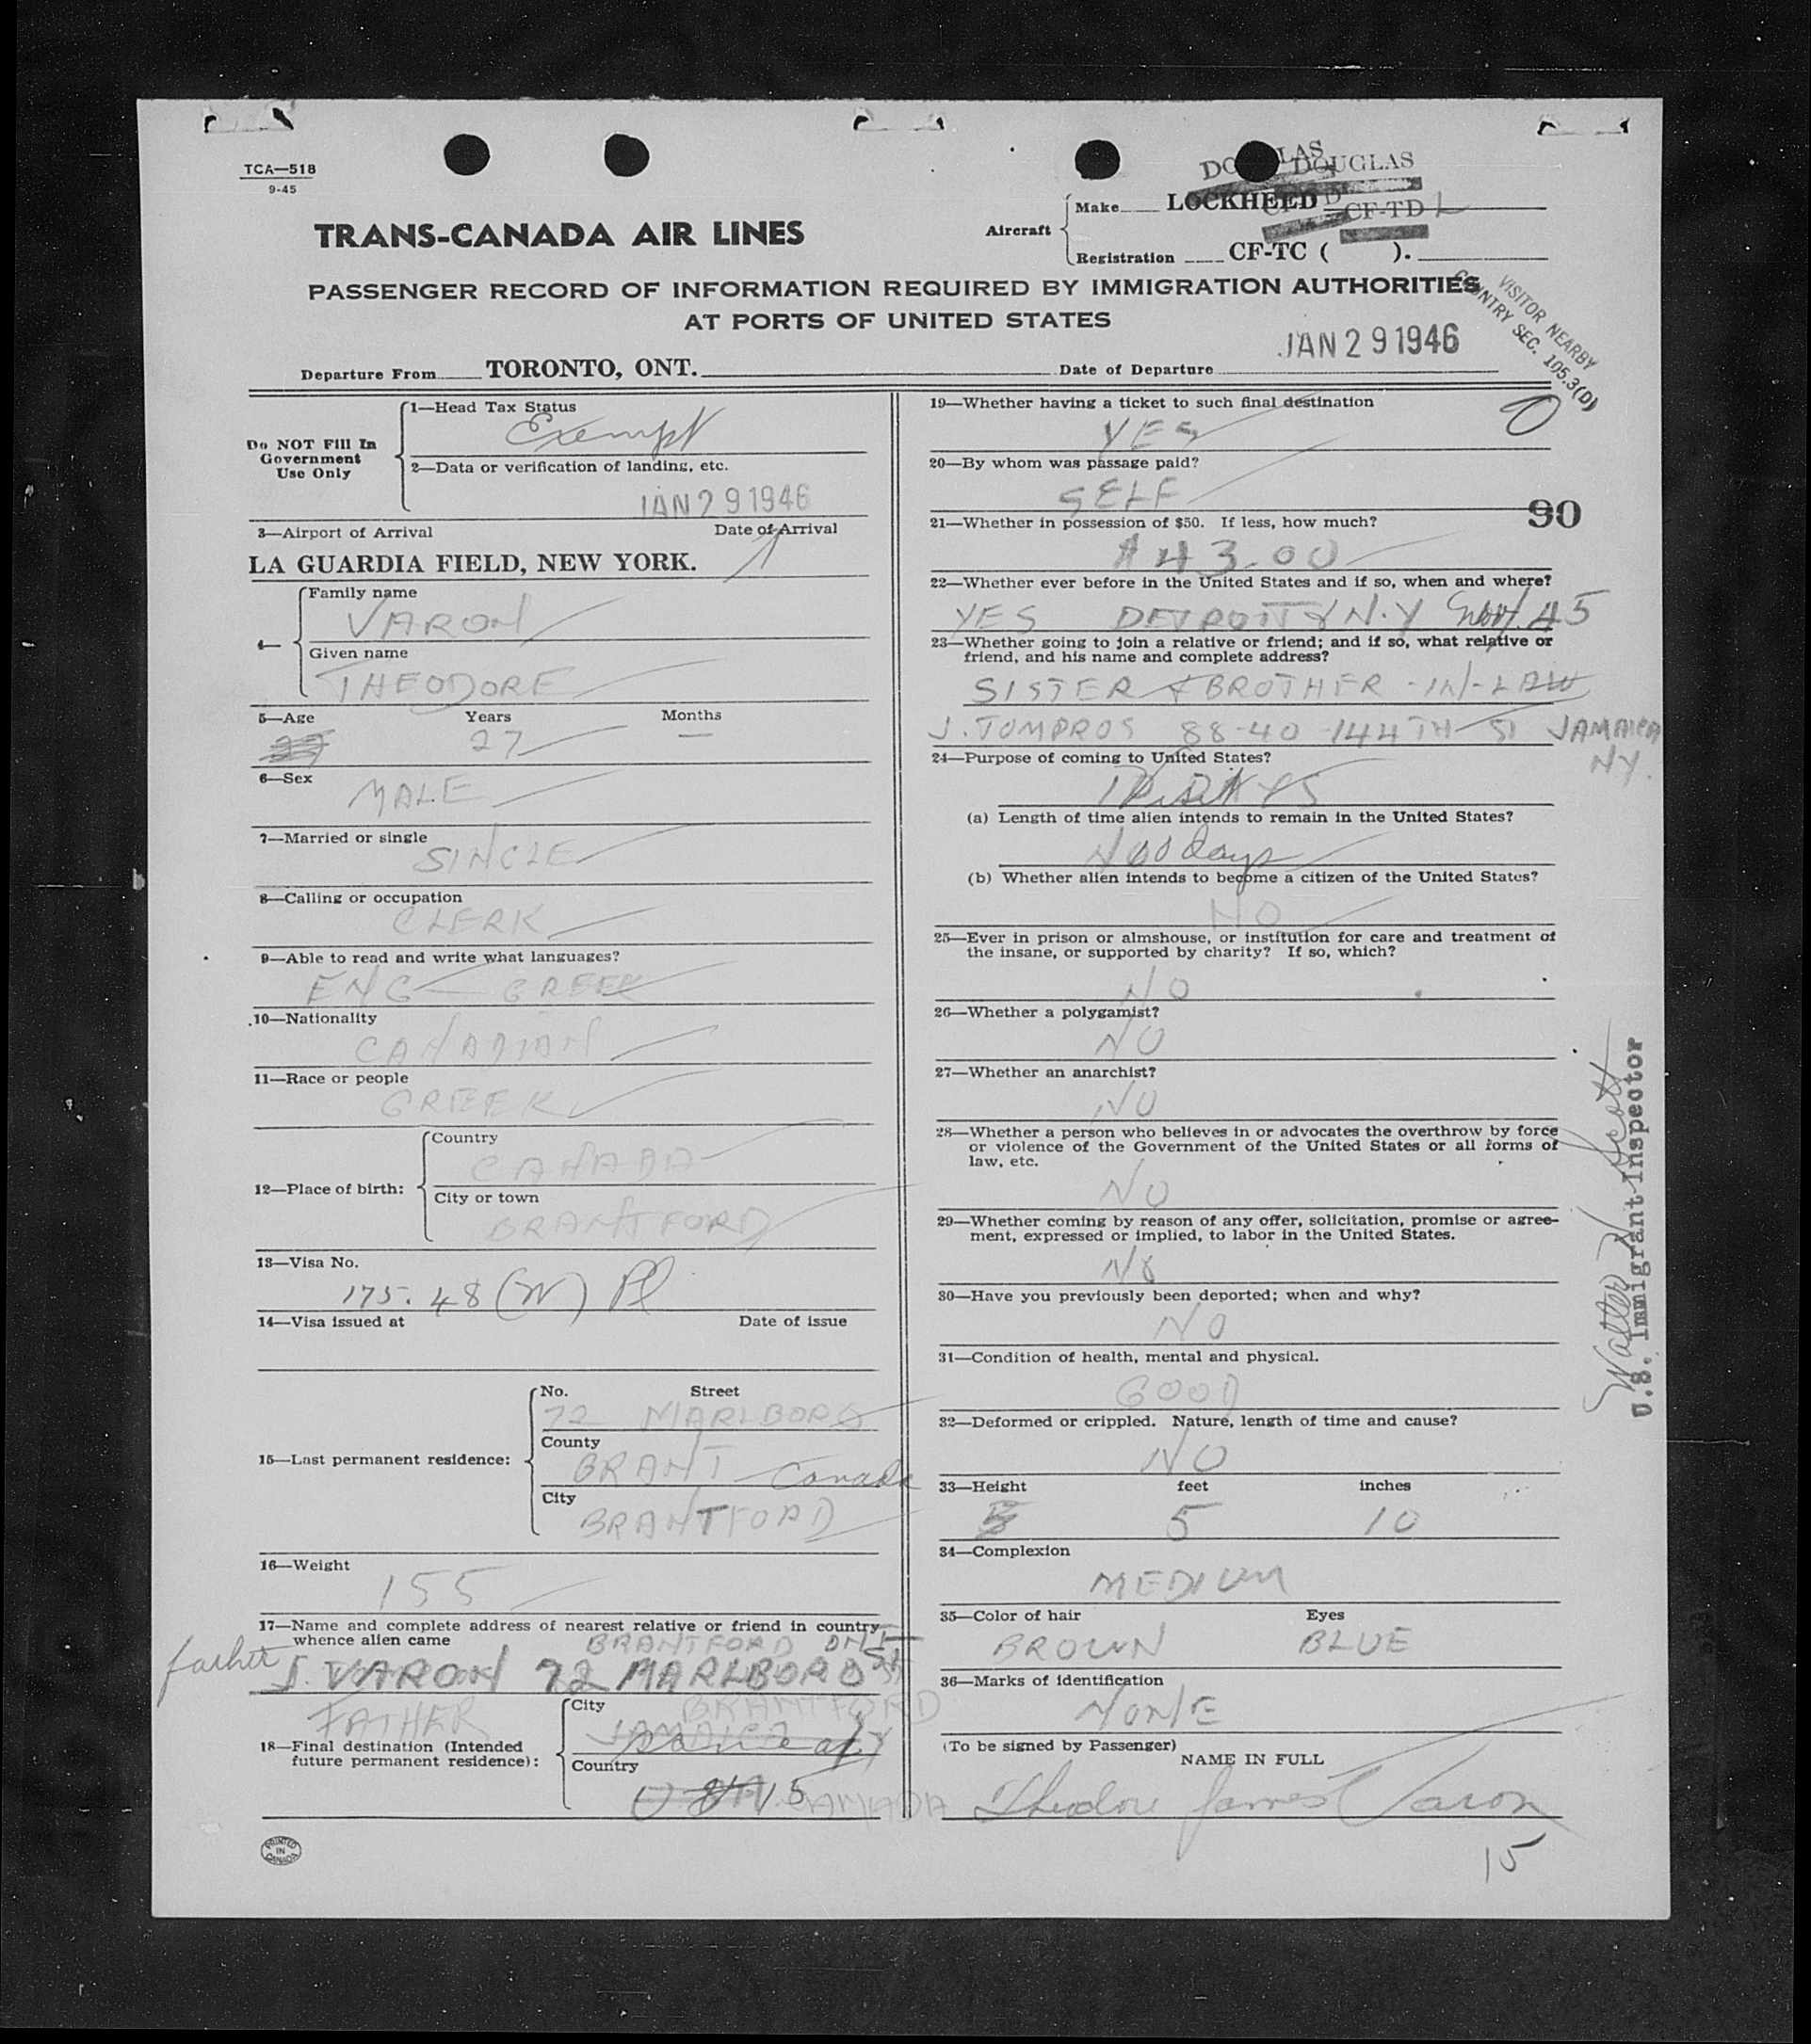 TCA—518
9-45
DOUGLAS
DOUGLAS
TRANS-CANADA AIR LINES
Aircraft
Make LOCKHEED
CF-TD L
Registration CF-TC ( ).
PASSENGER RECORD OF INFORMATION REQUIRED BY IMMIGRATION AUTHORITIES
AT PORTS OF UNITED STATES
VISITOR NEARBY
COUNTRY SEC. 105.3(D)
Departure From TORONTO, ONT.
Date of Departure JAN 29 1946
Do NOT Fill In
Government
Use Only
1—Head Tax Status
Exempt
2—Data or verification of landing, etc.
JAN 29 1946
3—Airport of Arrival Date of Arrival
LA GUARDIA FIELD, NEW YORK.
4—
Family name
VARON
Given name
THEODORE
5—Age Years Months
27 —
6—Sex
MALE
7—Married or single
SINGLE
8—Calling or occupation
CLERK
9—Able to read and write what languages?
ENG — GREEK
10—Nationality
CANADIAN
11—Race or people
GREEK
12—Place of birth:
Country
CANADA
City or town
BRANTFORD
13—Visa No.
175. 48 (W) Pl
14—Visa issued at Date of issue
15—Last permanent residence:
No. Street
72 MARLBORO
County
BRANT Canada
City
BRANTFORD
16—Weight
155
17—Name and complete address of nearest relative or friend in country
whence alien came
BRANTFORD ONT
father J. VARON 72 MARLBORO St
FATHER
18—Final destination (Intended
future permanent residence):
City
BRANTFORD
JAMAICA
Country
CANADA
PRINTED
IN
CANADA
19—Whether having a ticket to such final destination
YES
20—By whom was passage paid?
SELF
90
21—Whether in possession of $50. If less, how much?
$43.00
22—Whether ever before in the United States and if so, when and where?
YES DETROIT & N.Y Nov. 45
23—Whether going to join a relative or friend; and if so, what relative or
friend, and his name and complete address?
SISTER & BROTHER-IN-LAW
J. TOMPROS 88-40-144TH ST JAMAICA
NY.
24—Purpose of coming to United States?
Visit
(a) Length of time alien intends to remain in the United States?
days
(b) Whether alien intends to become a citizen of the United States?
NO
25—Ever in prison or almshouse, or institution for care and treatment of
the insane, or supported by charity? If so, which?
NO
26—Whether a polygamist?
NO
27—Whether an anarchist?
NO
28—Whether a person who believes in or advocates the overthrow by force
or violence of the Government of the United States or all forms of
law, etc.
NO
29—Whether coming by reason of any offer, solicitation, promise or agree-
ment, expressed or implied, to labor in the United States.
NO
30—Have you previously been deported; when and why?
NO
31—Condition of health, mental and physical.
GOOD
32—Deformed or crippled. Nature, length of time and cause?
NO
33—Height feet inches
5 10
34—Complexion
MEDIUM
35—Color of hair Eyes
BROWN BLUE
36—Marks of identification
NONE
(To be signed by Passenger)
NAME IN FULL
Theodore James Varon
15
Walter Scott
U.S. Immigrant Inspector